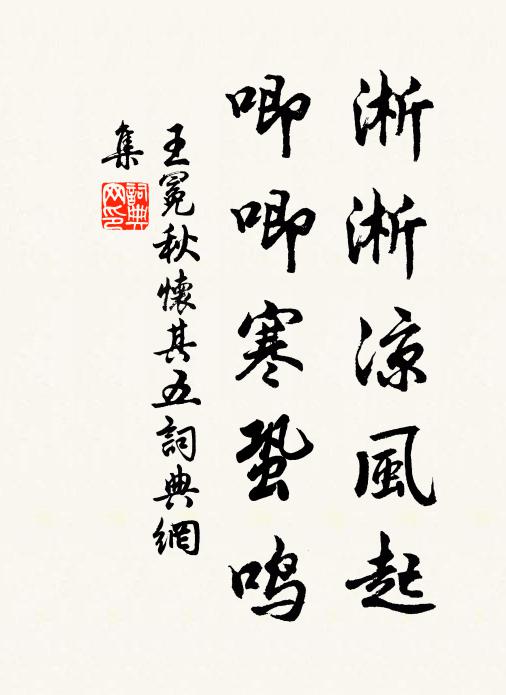 淅淅涼風起
唧唧寒蛩鳴
王冕秋懷其五詞典網
集
詞典
网印